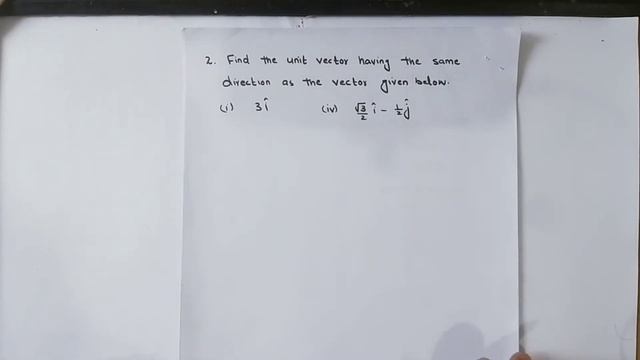 2. Find the unit vector having the same
direction as the vector given below.
(i) 3î (iv) √3/2 î - 1/2 ĵ